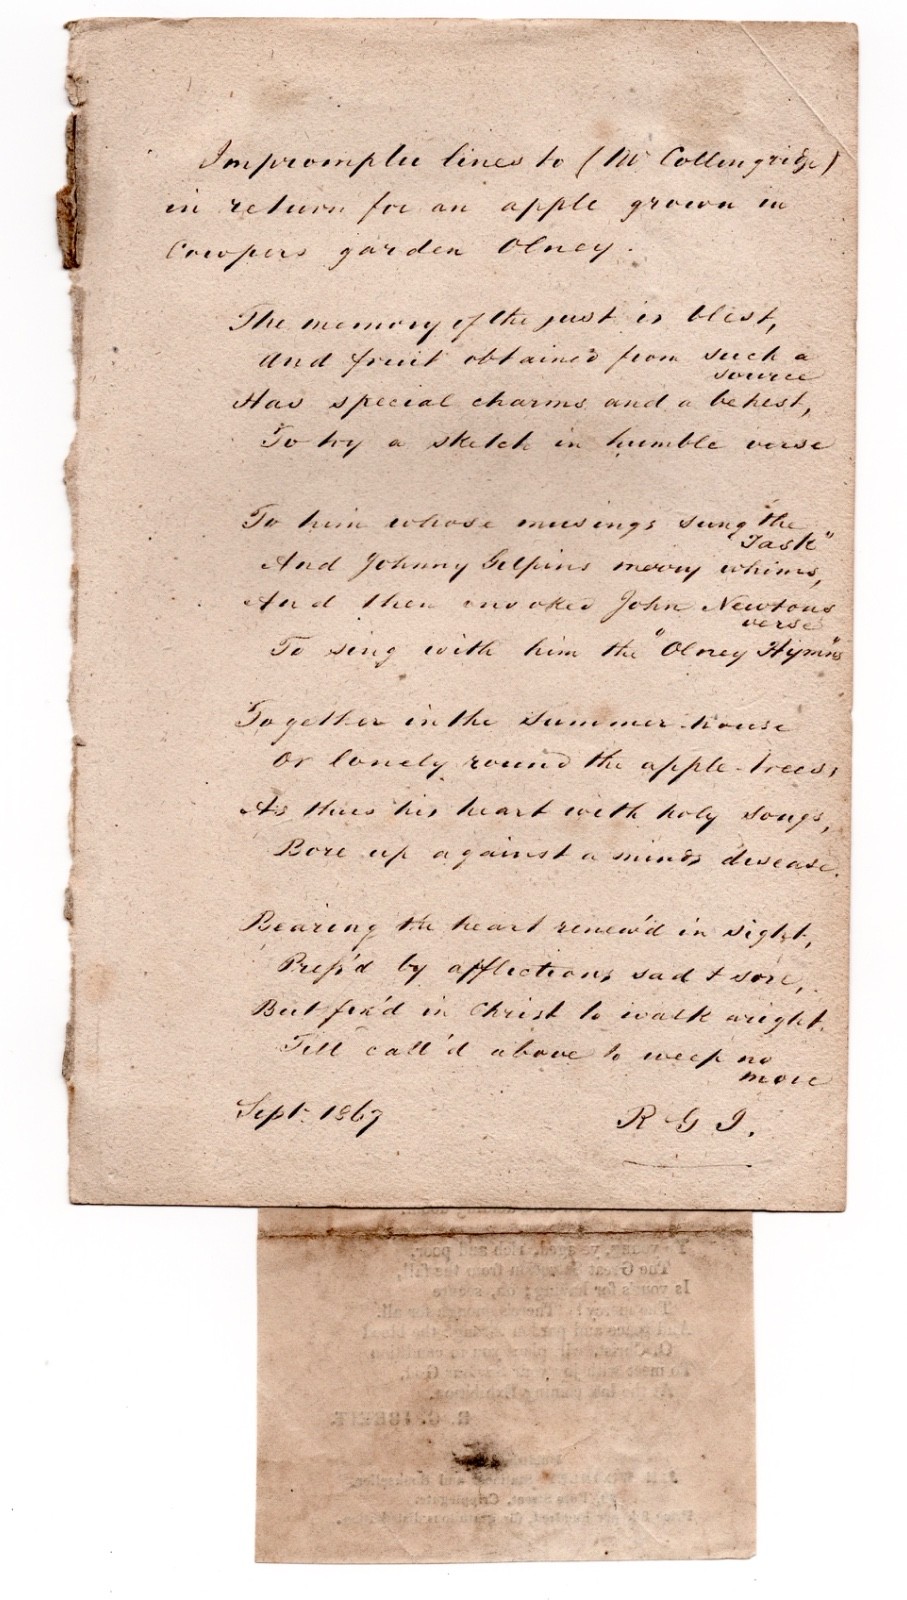 Impromptu lines to (Mr Collingridge)
in return for an apple grown in
Cowpers garden Olney.
The memory of the just is blest,
And fruit obtained from such a
source
Has special charms and a behest,
To try a sketch in humble verse
To him whose musings sung "the
"Task"
And Johnny Gilpins merry whims,
And then invoked John Newtons
verse
To sing with him the "Olney Hymns"
Together in the Summer-house
Or lonely round the apple-trees,
As thus his heart with holy songs,
Bore up against a minds disease.
Bearing the heart renew'd in sight,
Press'd by afflictions sad & sore,
But fix'd in Christ to walk aright.
Till call'd above to weep no
more
Sept. 1867
R G I.
young, ye aged, rich and poor,
The Great from the fall,
Is yours for having; oh, secure
The mercy! There's enough for all.
and pardon the blood
O. Christ
To meet with joy your God,
At the last Exhibition.
R. G. IBBETT.
and Bookseller,
Fore Street, Cripplegate.